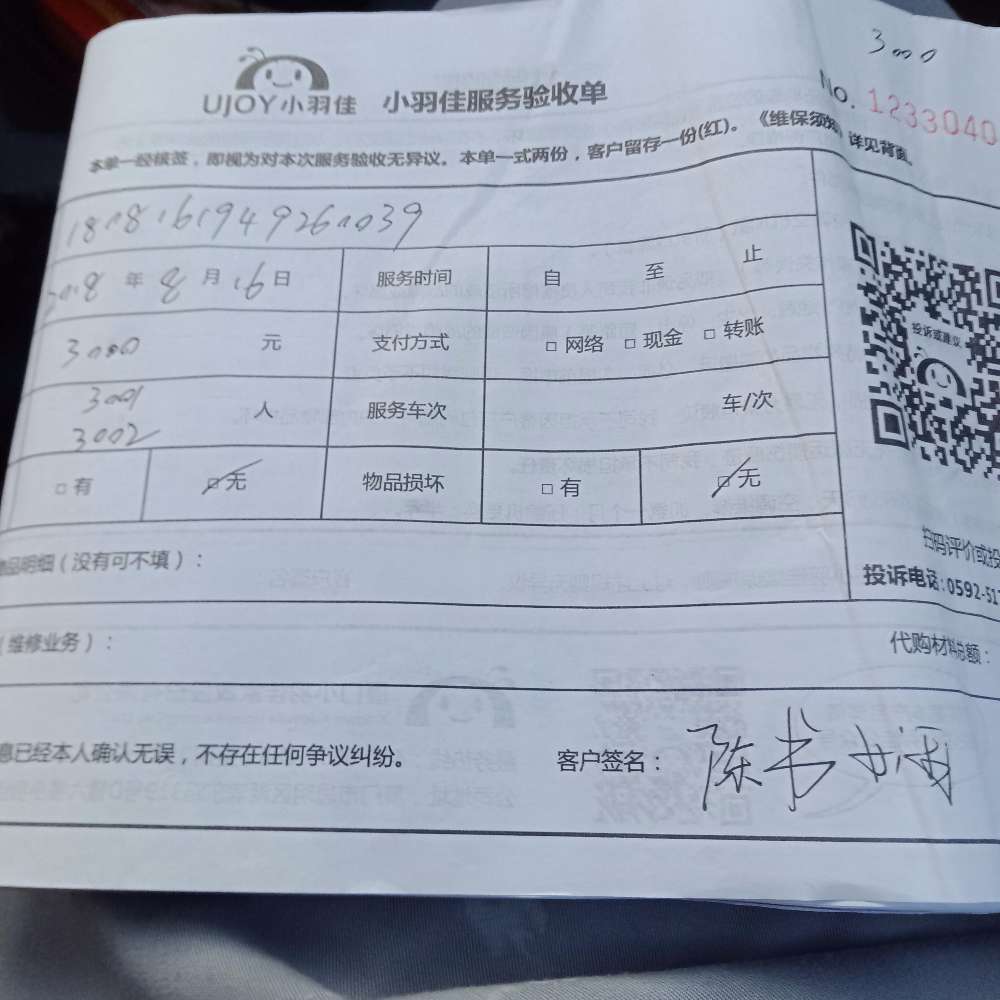 3000
UJOY小羽佳 小羽佳服务验收单 No. 1233040
本单一经核签，即视为对本次服务验收无异议。本单一式两份，客户留存一份(红)。《维保须知》详见背面。
2018年8月16日 服务时间 自 至 止
投诉或建议
3000 元 支付方式 □ 网络 □ 现金 □ 转账
3001
人 服务车次 车/次
3002
□ 有 □ 无 物品损坏 □ 有 □ 无
品明细（没有可不填）：
扫码评价或投
投诉电话：0592-517
（维修业务）： 代购材料总额：
息已经本人确认无误，不存在任何争议纠纷。 客户签名：陈书